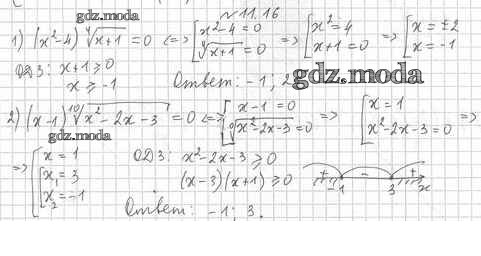 gdz.moda
№ 11.16
1) (x²-4) ∜(x+1) = 0 <=> [x²-4 = 0 ; ∜(x+1) = 0 => [x² = 4 ; x+1 = 0 => [x = ±2 ; x = -1
ОДЗ: x+1 ≥ 0
x ≥ -1
Ответ: -1; 2
gdz.moda
2) (x-1) ¹⁰√(x²-2x-3) = 0 <=> [x-1 = 0 ; ¹⁰√(x²-2x-3) = 0 => [x = 1 ; x²-2x-3 = 0 =>
gdz.moda
=> [x = 1 ; [x₁ = 3 ; x₂ = -1
ОДЗ: x²-2x-3 ≥ 0
(x-3)(x+1) ≥ 0
+ - +
-1 3 x
Ответ: -1; 3.